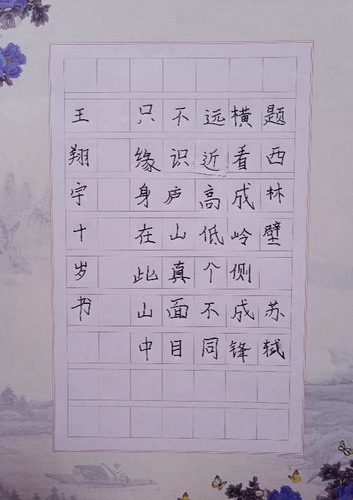 题西林壁 苏轼
横看成岭侧成锋
远近高低个不同
不识庐山真面目
只缘身在此山中
王翔宇十岁书